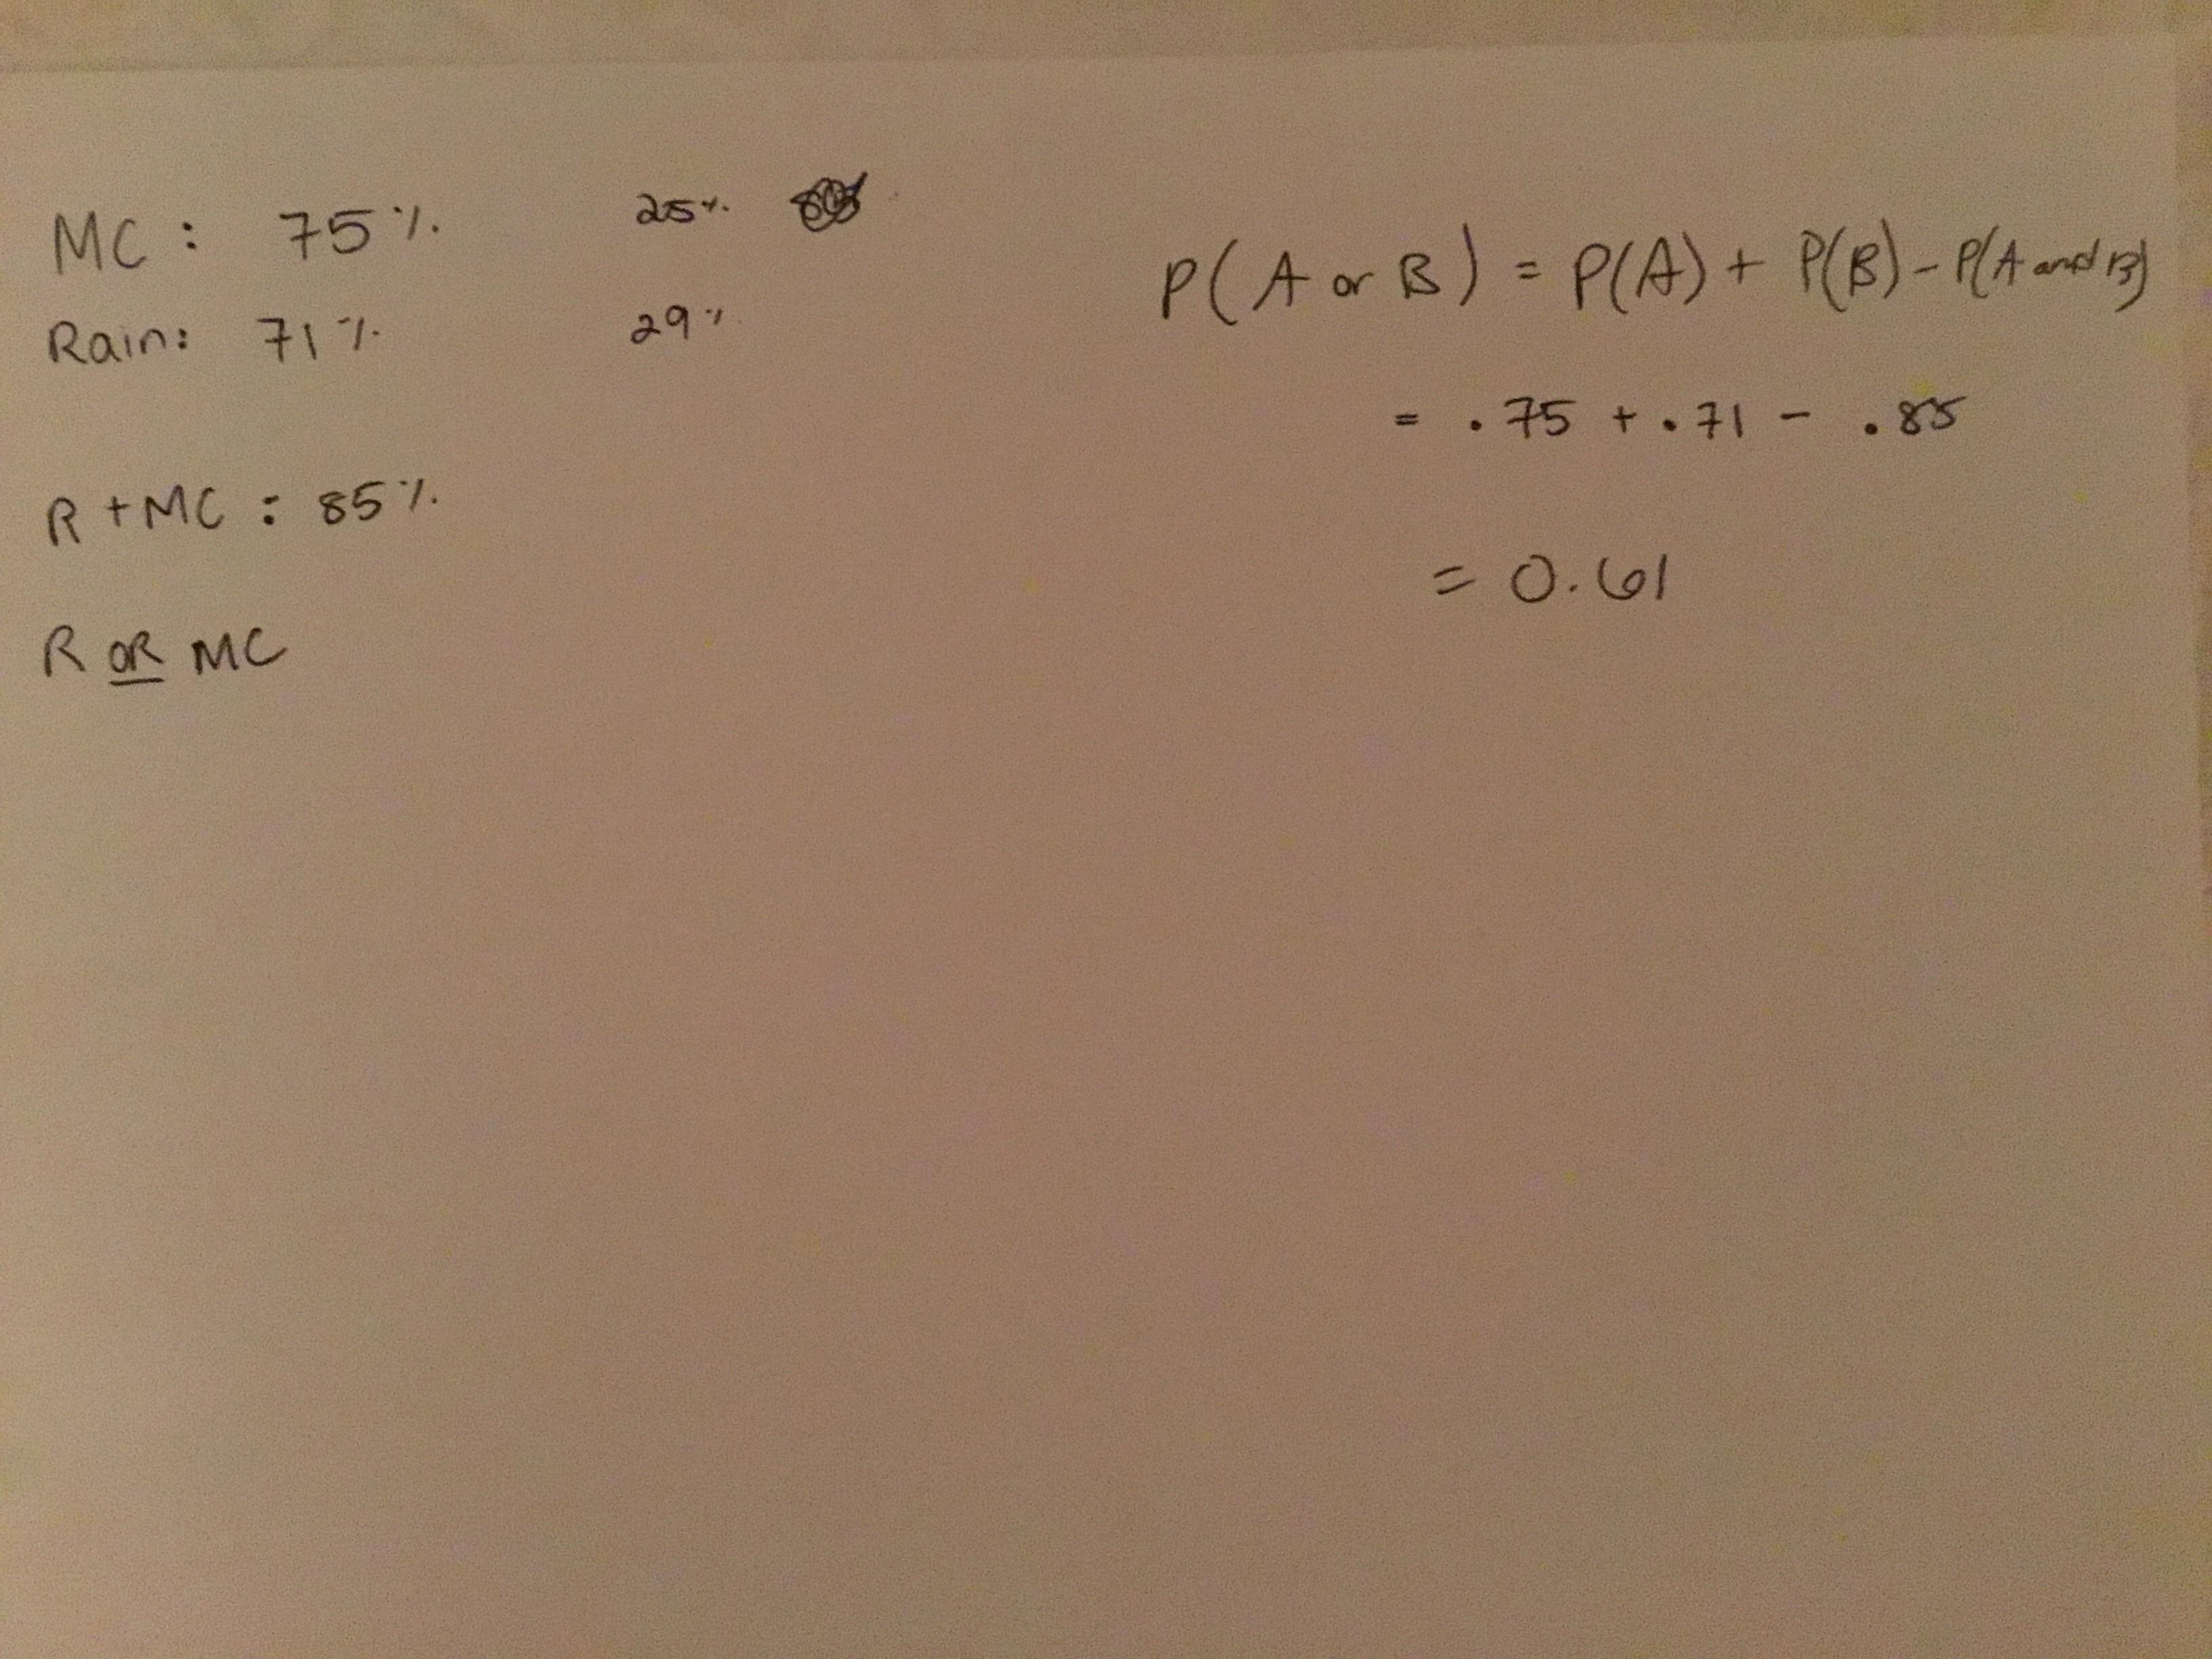 MC: 75% 25%
Rain: 71% 29%
R + MC: 85%
R OR MC
P(A or B) = P(A) + P(B) - P(A and B)
= .75 + .71 - .85
= 0.61